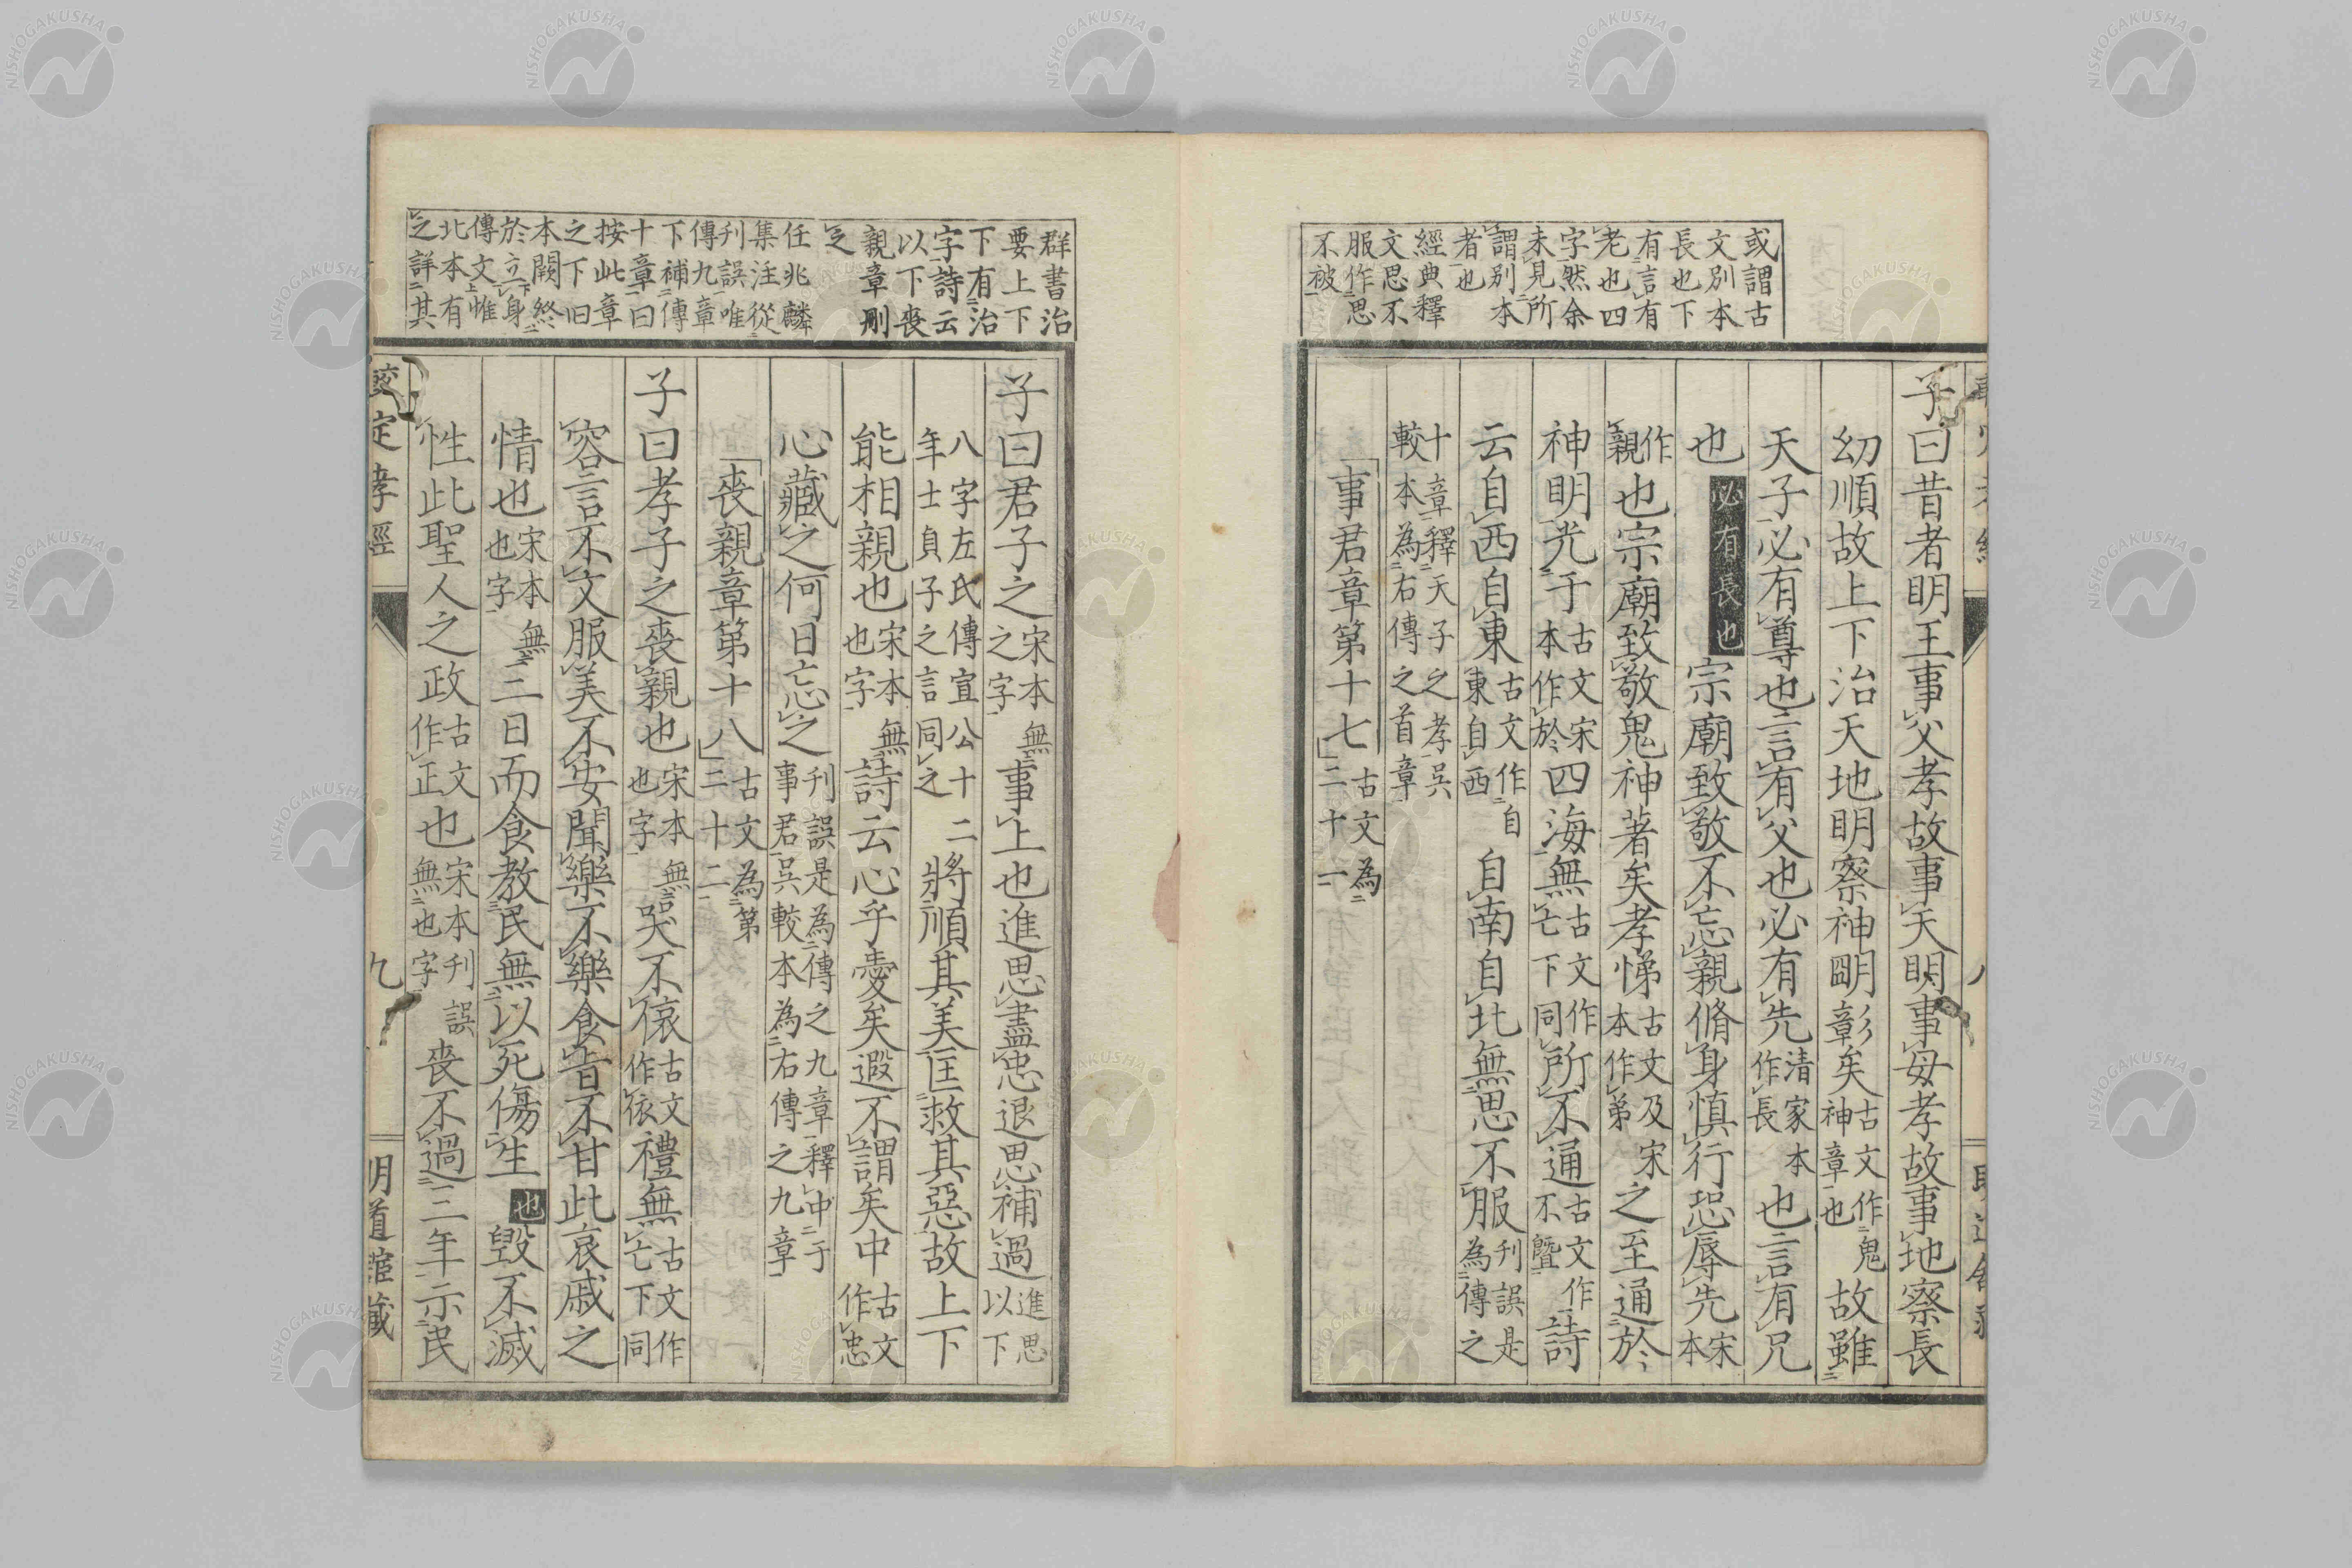 或謂古
文別本
長也下
有言有
老也四
字然余
未見所
謂別本
者也
經典釋
文思不
服作思
不被
子曰昔者明王事父孝故事天明事母孝故事地察長
幼順故上下治天地明察神明彰矣古文作鬼神章也故雖
天子必有尊也言有父也必有先清家本作長也言有兄
也必有長也宗廟致敬不忘親脩身慎行恐辱先宋本
作親也宗廟致敬鬼神著矣孝悌古文及宋本作弟之至通於
神明光于古文宋本作於四海無古文作亡下同所不通古文作不曁詩
云自西自東古文作自東自西自南自北無思不服刊誤是為傳之
十章釋天子之孝吳較本為右傳之首章
事君章第十七古文為二十一
群書治
要上下
下有治
字詩云
以下喪
親章刪
之
任兆麟
集注從
刊誤唯
傳九章
下補傳
十章曰
按此章
之下旧
本闕終
於立身
傳文惟
北本有
之詳其
子曰君子之宋本無之字事上也進思盡忠退思補過進思以下
八字左氏傳宣公十二年士貞子之言同之將順其美匡救其惡故上下
能相親也宋本無也字詩云心乎愛矣遐不謂矣中古文作忠
心藏之何日忘之刊誤是為傳之九章釋中于事君吳較本為右傳之九章
喪親章第十八古文為第二十二
子曰孝子之喪親也宋本無也字哭不偯古文作依禮無古文作亡下同
容言不文服美不安聞樂不樂食旨不甘此哀戚之
情也宋本無也字三日而食教民無以死傷生也毀不滅
性此聖人之政古文作正也宋本刊誤無也字喪不過三年示民
定孝經
九
明道館藏